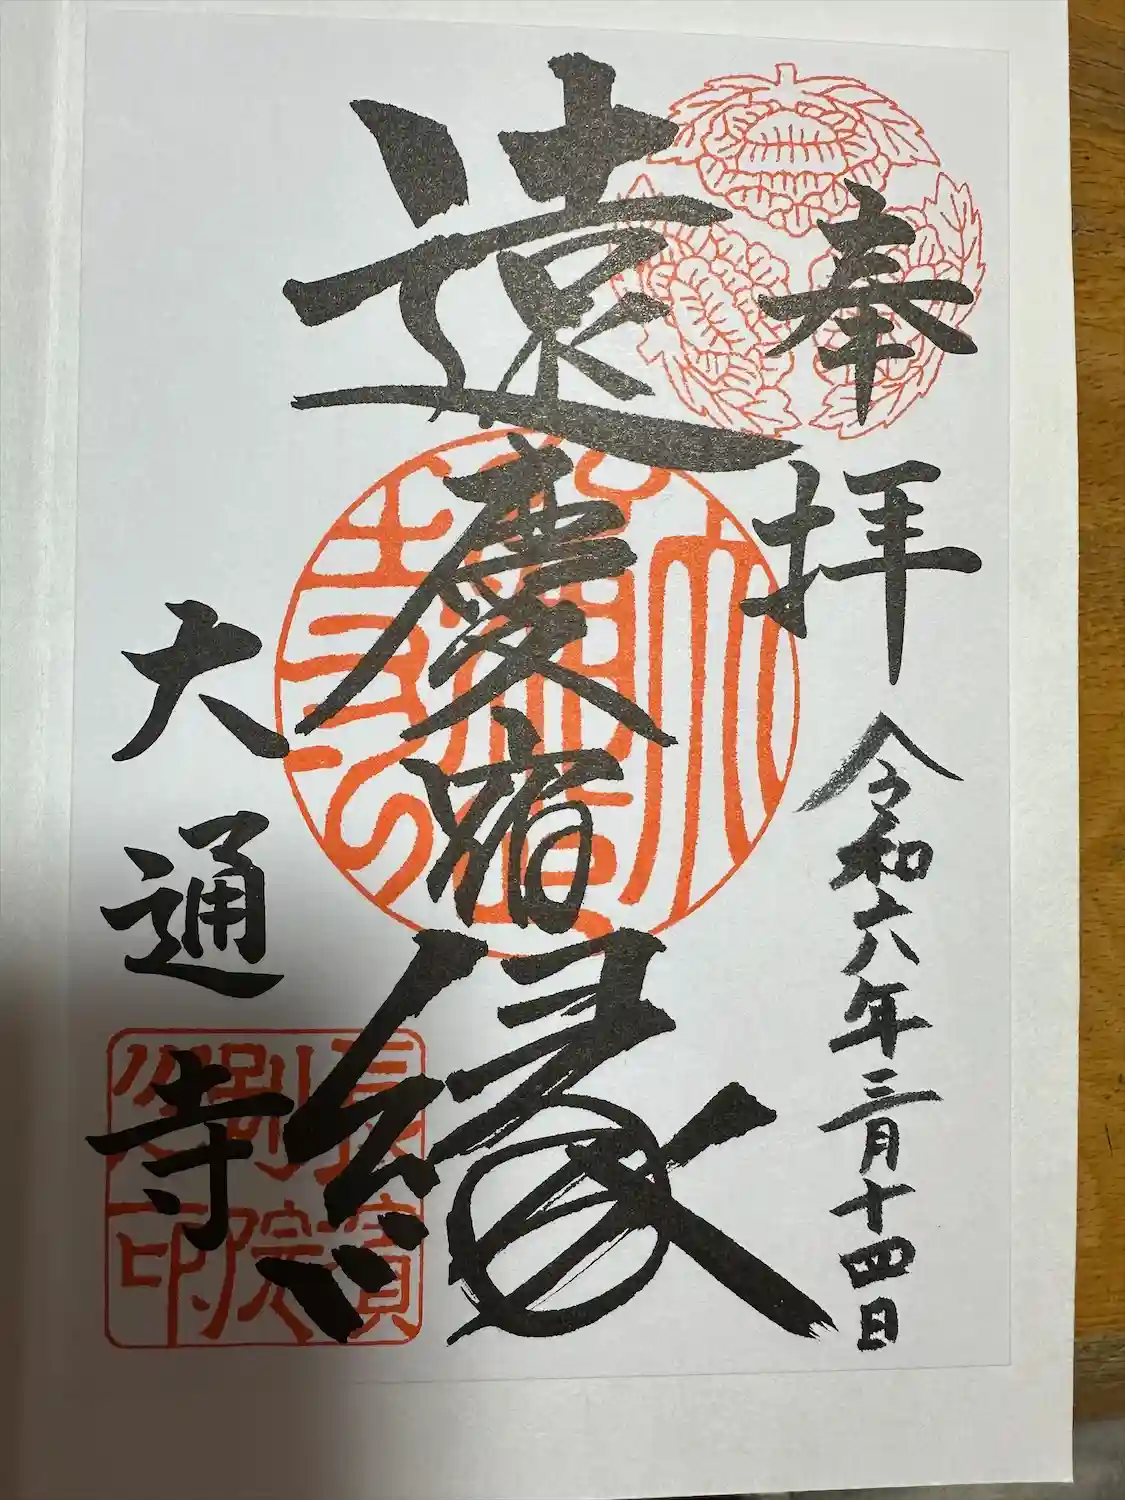 奉拝
令和六年三月十四日
遠慶宿縁
大通寺
長濵
別院
之印